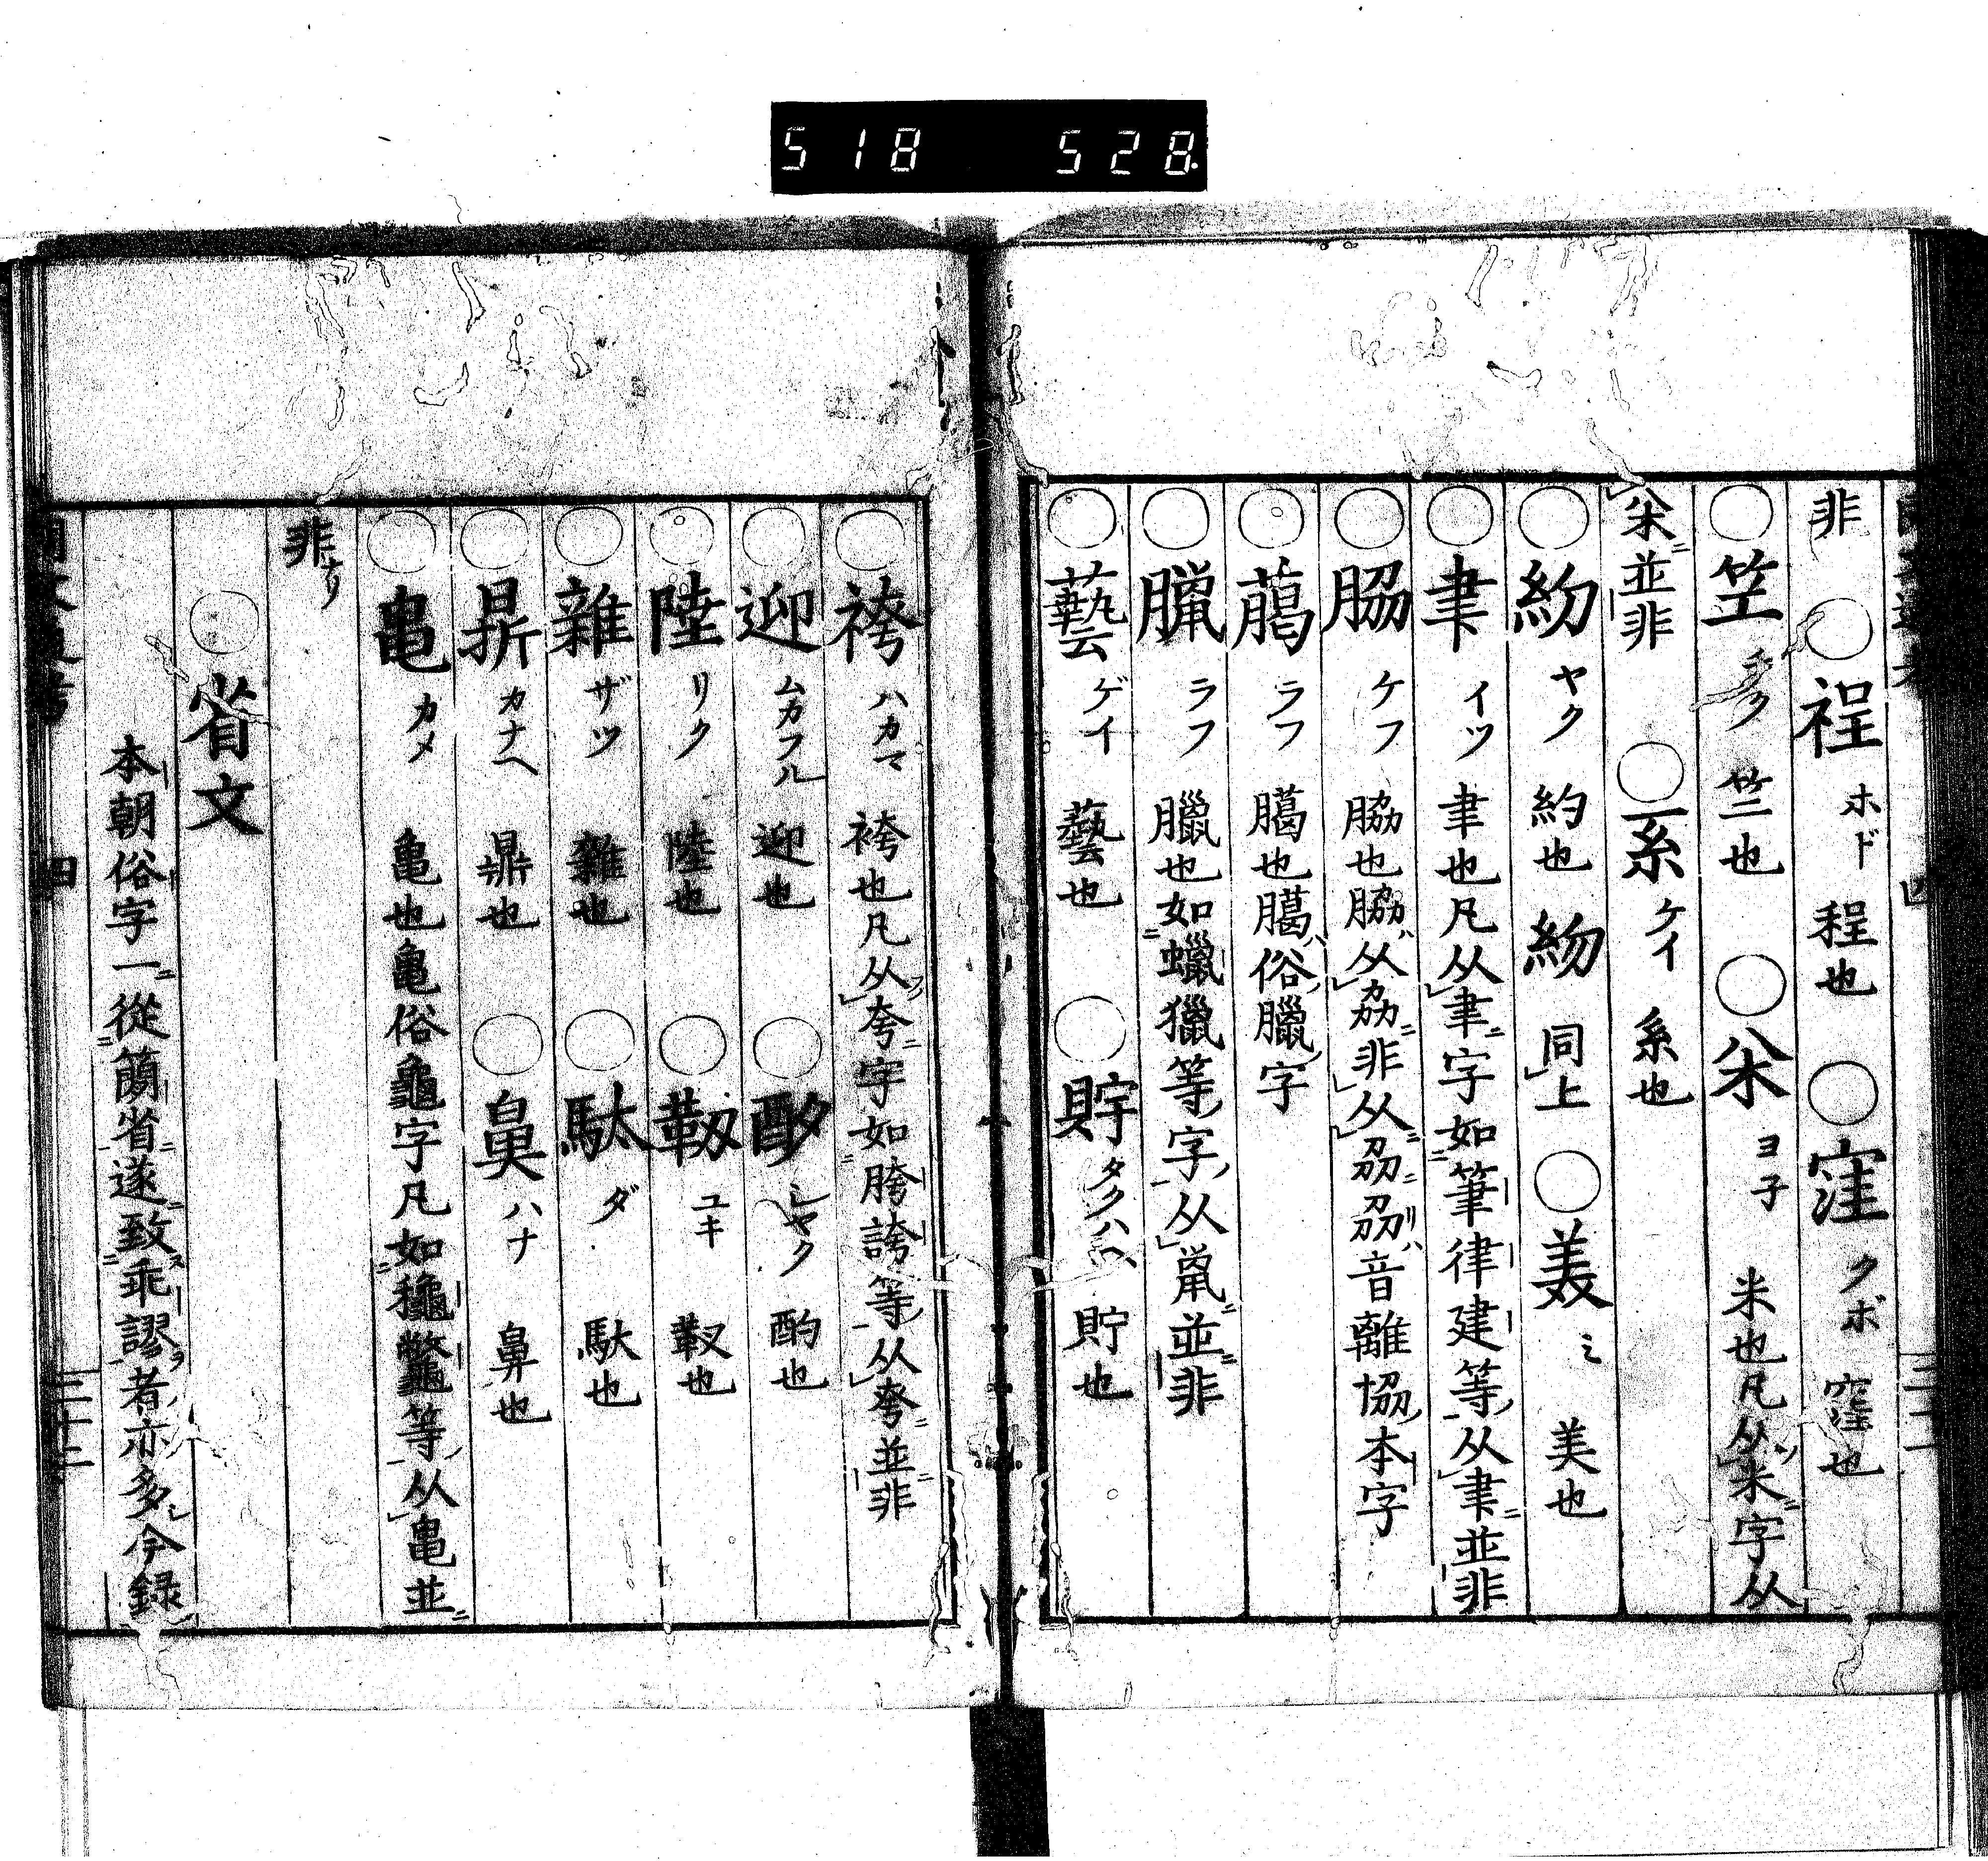 518 528
非 ○裎 ホド 程也 ○窪 クボ 窪也
○笁 竺也 ○𥝢 ヨ子 米也凡从米字从
𥝢並非 ○糸 ケイ 系也
○約 ヤク 約也 䊵 同上 ○羙 ミ 美也
○聿 イツ 聿也凡从聿字如筆律建等从聿並非
○脇 ケフ 脇也脇从劦非从刕刕音離協本字
○臈 ラフ 臈也臈俗臘字
○臘 ラフ 臘也如蠟獵等字从鼡並非
○藝 ゲイ 藝也 ○貯 タクハヘ 貯也
○袴 ハカマ 袴也凡从夸字如胯誇等从夸並非
○迎 ムカフル 迎也 ○酌 シヤク 酌也
○陸 リク 陸也 ○靫 ユキ 靫也
○雜 ザツ 雜也 ○駄 ダ 馱也
○鼎 カナヘ 鼎也 ○鼻 ハナ 鼻也
○亀 カメ 亀也亀俗龜字凡如龝鼈等从亀並
非ナリ
○省文
本朝俗字一從簡省遂致乖謬者亦多今録